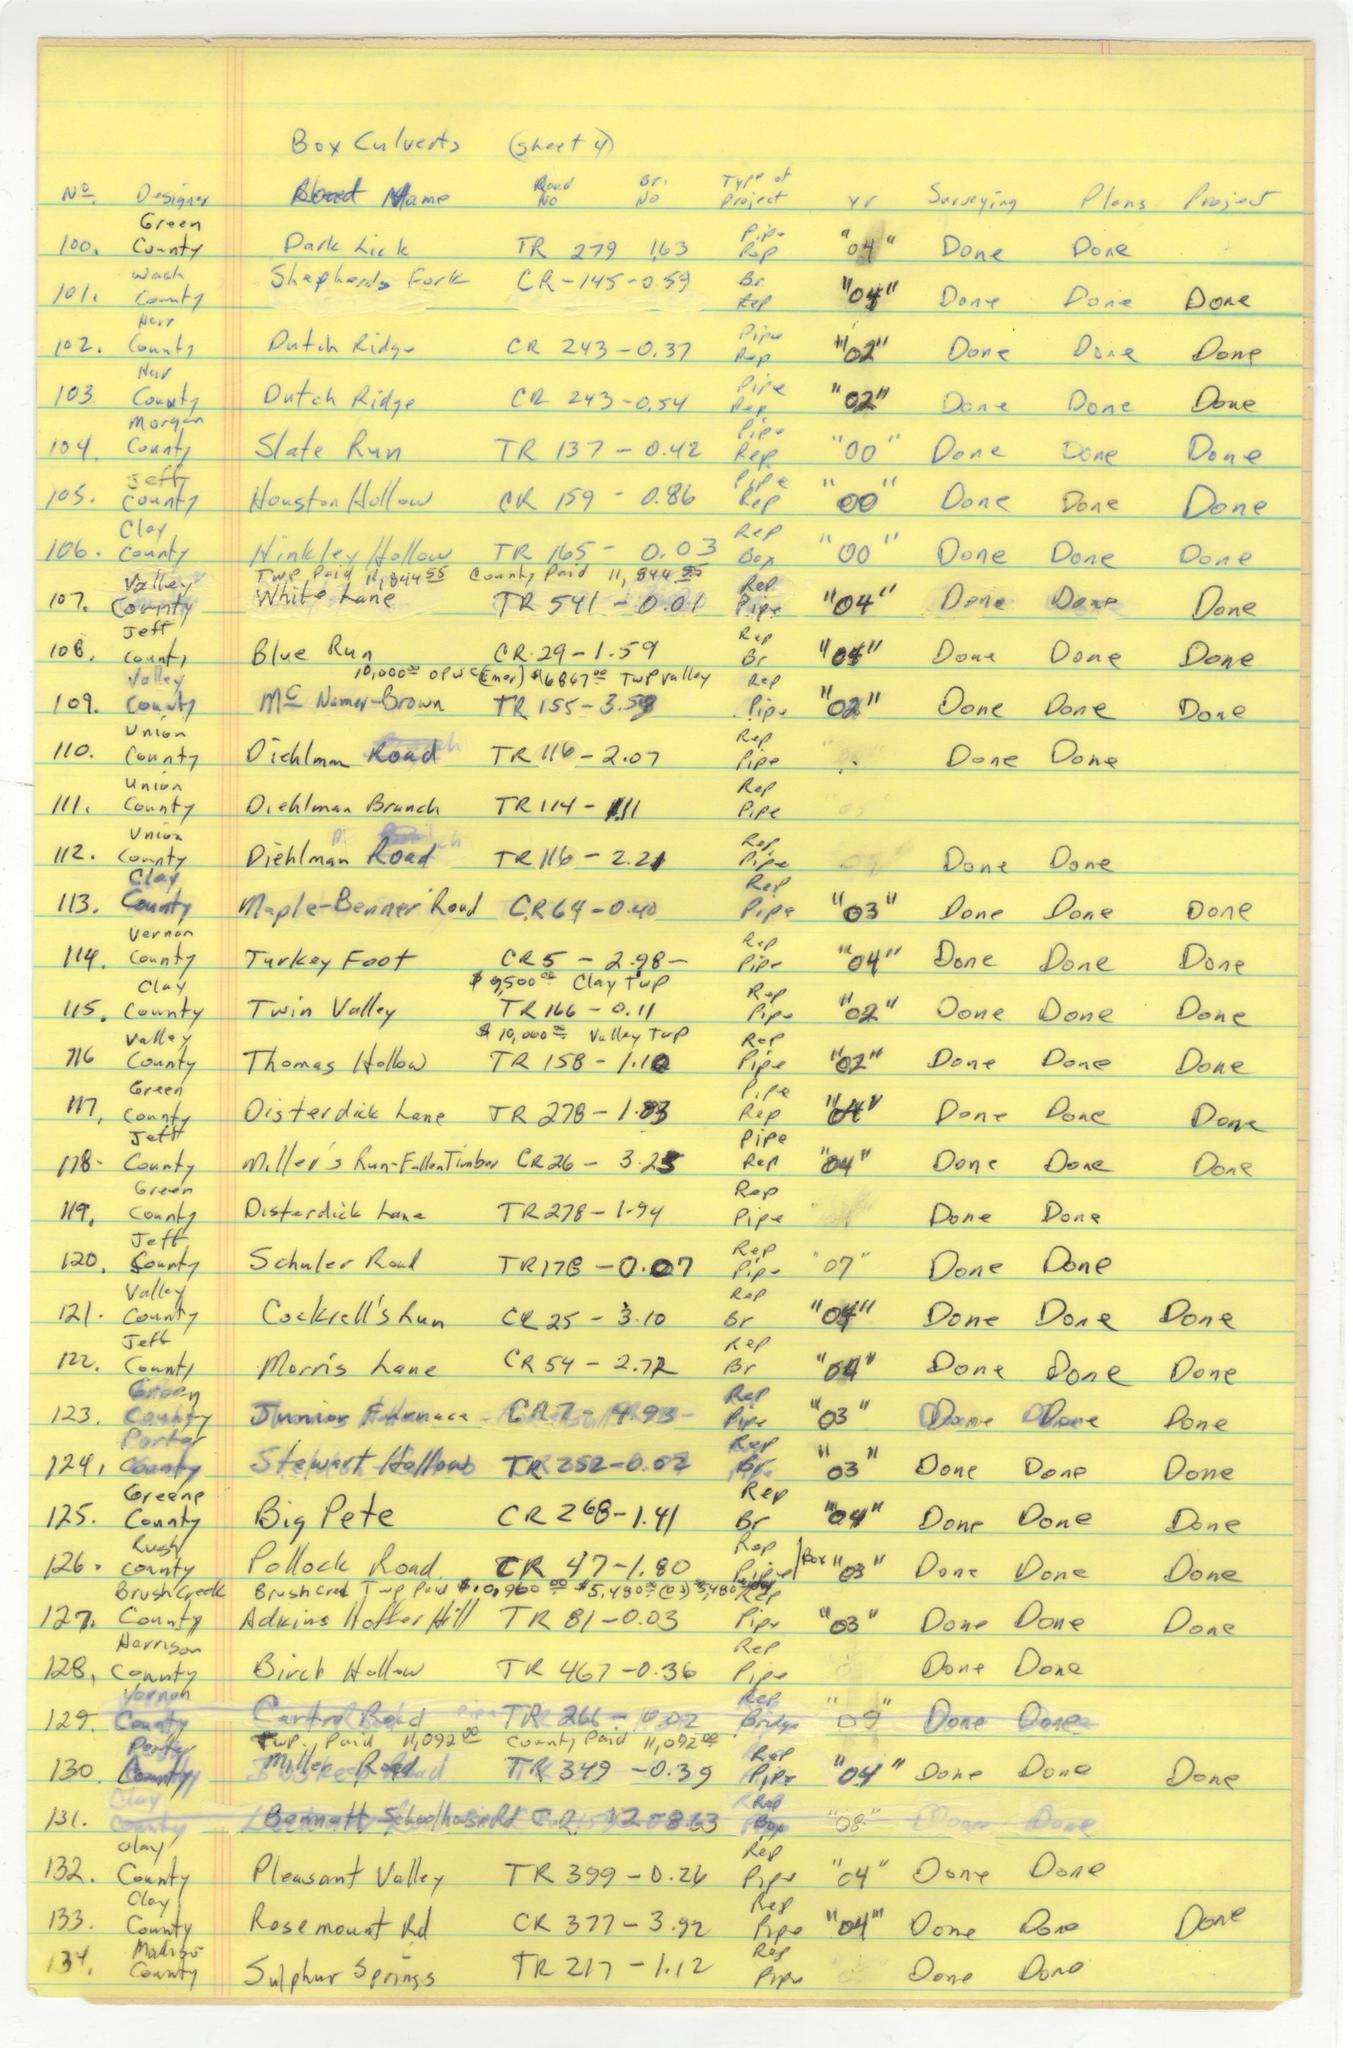 Box Culverts (sheet 4)
No. Designer Road Name Road No Br. No Type of Project Yr Surveying Plans Project
Green Pipe
100. County Dark Lick TR 279 1.63 Rep "04" Done Done
Wash Shepherds Fork CR-145-0.59 Br
101. County Rep "04" Done Done Done
Pipe
102. County Dutch Ridge CR 243-0.37 Rep "02" Done Done Done
Pipe
103. County Dutch Ridge CR 243-0.54 Rep "02" Done Done Done
Morgan Pipe
104. County Slate Run TR 137-0.42 Rep "00" Done Done Done
Jeff Pipe
105. County Houston Hollow CR 159-0.86 Rep "00" Done Done Done
Clay Rep
106. County Hinkley Hollow TR 165-0.03 Box "00" Done Done Done
Valley Twp Paid 11,844.55 County Paid 11,844.55 Rep
107. County White Lane TR 541-0.01 Pipe "04" Done Done Done
Jeff Rep
108. County Blue Run CR-29-1.59 Br "04" Done Done Done
Valley 10,000.00 OPWC (Emer) $6867.00 Twp Valley Rep
109. County McNamer-Brown TR 155-3.59 Pipe "02" Done Done Done
Union Rep
110. County Diehlman Road TR 116-2.07 Pipe Done Done
Union Rep
111. County Diehlman Branch TR 114-1.11 Pipe
Union Rep
112. County Diehlman Road TR 116-2.21 Pipe Done Done
Clay Rep
113. County Maple-Benner Road CR 64-0.40 Pipe "03" Done Done Done
Vernon Rep
114. County Turkey Foot CR 5-2.98- Pipe "04" Done Done Done
Clay $9,500.00 Clay Twp Rep
115. County Twin Valley TR 166-0.11 Pipe "02" Done Done Done
Valley $10,000.00 Valley Twp Rep
116 County Thomas Hollow TR 158-1.10 Pipe "02" Done Done Done
Green Pipe
117. County Disterdick Lane TR 278-1.83 Rep "04" Done Done Done
Jeff Pipe
118- County Miller's Run-Fallen Timber CR 26-3.25 Rep "04" Done Done Done
Green Rep
119. County Disterdick Lane TR 278-1.94 Pipe Done Done
Jeff Rep
120. County Schuler Road TR 178-0.07 Pipe "07" Done Done
Valley Rep
121. County Cockrell's Run CR 25-3.10 Br "04" Done Done Done
Jeff Rep
122. County Morris Lane CR 54-2.72 Br "04" Done Done Done
Green Rep
123. County Junior Furnace CR 7-4.93 Pipe "03" Done Done Done
Porter Rep
124. County Stewart Hollow TR 252-0.02 Br "03" Done Done Done
Greene Rep
125. County Big Pete CR 268-1.41 Br "04" Done Done Done
Rush Rep
126. County Pollock Road CR 47-1.80 Pipe/Box "03" Done Done Done
Brush Creek Brush Creek Twp Paid $10,960.00 $5,480.00 (03) 5,480 Rep
127. County Adkins Hoffer Hill TR 81-0.03 Pipe "03" Done Done Done
Harrison Rep
128. County Birch Hollow TR 467-0.36 Pipe Done Done
Vernon Rep
129. County Road TR 266-0.02 Bridge "09" Done Done
Porter Twp. Paid 11,092.00 County Paid 11,092.00 Rep
130. County Miller Road TR 349-0.39 Pipe "04" Done Done Done
Clay Rep
131. County Bennett Schoolhouse Rd CR Box "08" Done Done
Clay Rep
132. County Pleasant Valley TR 399-0.26 Pipe "04" Done Done
Clay Rep
133. County Rosemount Rd CR 377-3.92 Pipe "04" Done Done Done
Madison Rep
134. County Sulphur Springs TR 217-1.12 Pipe Done Done